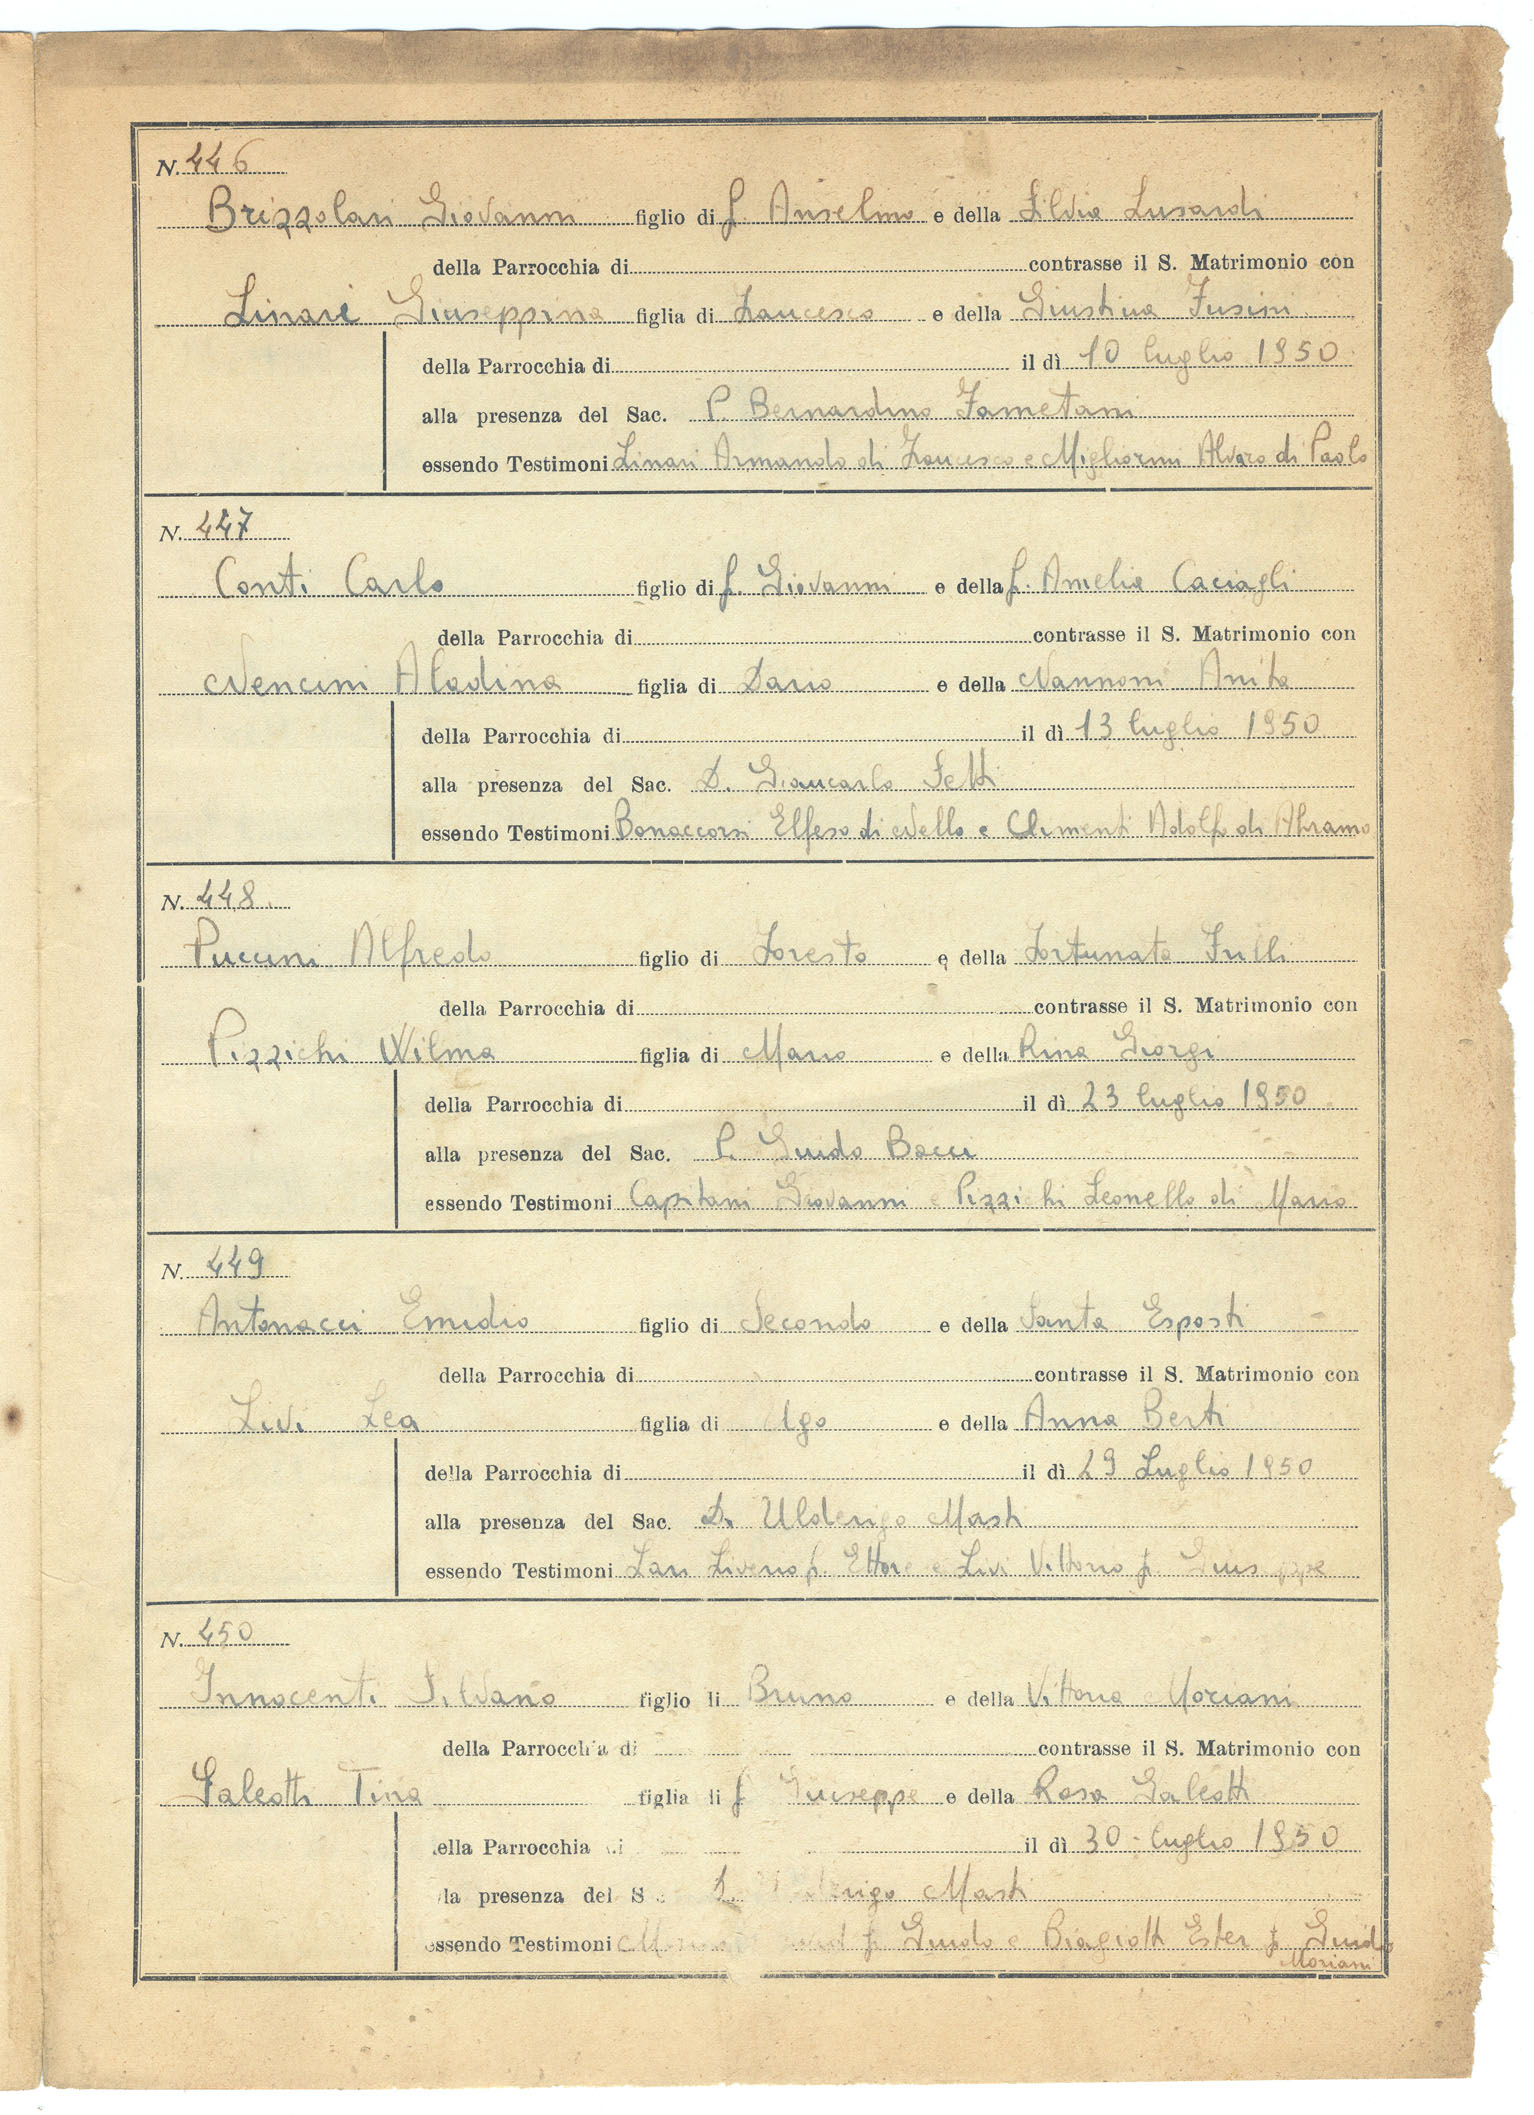 N. 446
Brizzolari Giovanni figlio di f. Anselmo e della Silvia Lusardi
della Parrocchia di contrasse il S. Matrimonio con
Linari Giuseppina figlia di Francesco e della Giustina Fusini
della Parrocchia di il dì 10 luglio 1950
alla presenza del Sac. P. Bernardino Fametani
essendo Testimoni Linari Armando di Francesco e Migliorini Alvaro di Paolo
N. 447
Conti Carlo figlio di f. Giovanni e della f. Amelia Caciagli
della Parrocchia di contrasse il S. Matrimonio con
Nencini Aladina figlia di Dario e della Nannoni Anita
della Parrocchia di il dì 13 luglio 1950
alla presenza del Sac. D. Giancarlo Setti
essendo Testimoni Bonaccorsi Elfeso di Nello e Clementi Adolfo di Abramo
N. 448
Puccini Alfredo figlio di Foresto e della Fortunata Frilli
della Parrocchia di contrasse il S. Matrimonio con
Pizzichi Wilma figlia di Mario e della Rina Giorgi
della Parrocchia di il dì 23 luglio 1950
alla presenza del Sac. P. Guido Bacci
essendo Testimoni Capitani Giovanni e Pizzichi Leonello di Mario
N. 449
Antonacci Emidio figlio di Secondo e della Santa Esposti
della Parrocchia di contrasse il S. Matrimonio con
Livi Lea figlia di Ugo e della Anna Berti
della Parrocchia di il dì 29 Luglio 1950
alla presenza del Sac. D. Ulderigo Masti
essendo Testimoni Lari Liverio f. Ettore e Livi Vittorio f. Giuseppe
N. 450
Innocenti Silvano figlio di Bruno e della Vittoria Moriani
della Parrocchia di contrasse il S. Matrimonio con
Galeotti Tina figlia di f. Giuseppe e della Rosa Galeotti
della Parrocchia di il dì 30 luglio 1950
alla presenza del S D. Ulderigo Masti
essendo Testimoni f. Guido e Biagiotti Ester f. Guido
Moriani